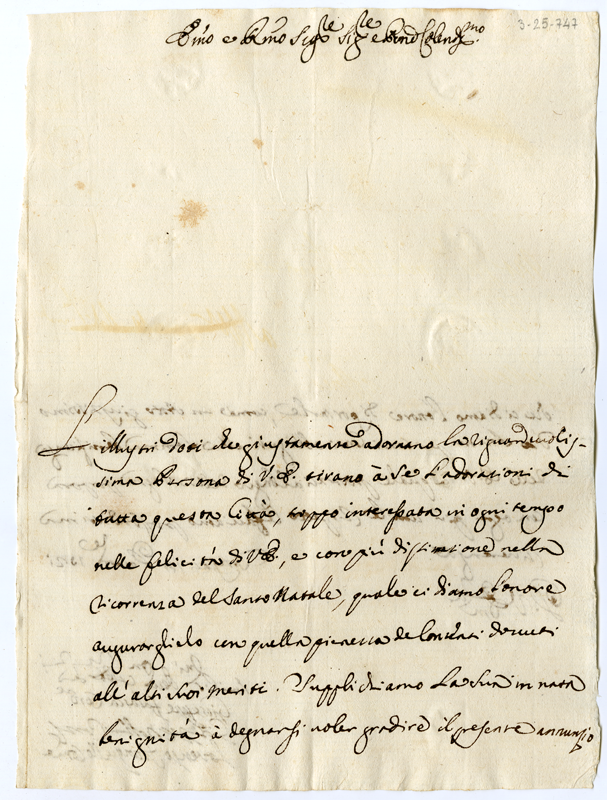 3-25-747
Emo e Rmo Sigre Sigre e Pne Colendmo
L'illustri doti che giustamente adornano la riguardevolis-
sima Persona di V.E. tirano à se l'adorationi di
tutta questa Città, troppo interessata in ogni tempo
nelle felicità di V.E., e con più distintione nella
ricorrenza del Santo Natale, quale ci diamo l'onore
augurarglielo con quella pienezza de contenti dovuti
all'alti suoi meriti. Supplichiamo la sua innata
benignità à degnarsi voler gradire il presente annunzio